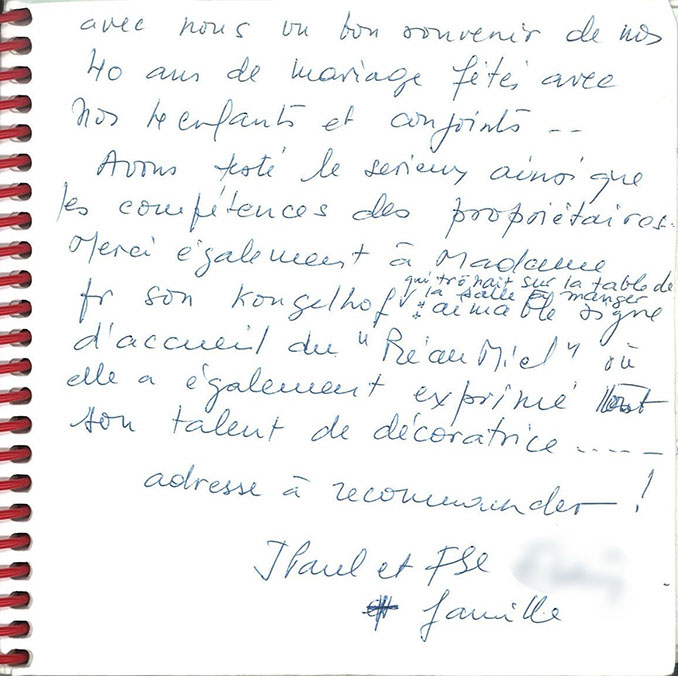 avec nous un bon souvenir de nos
40 ans de mariage fêtés avec
nos 4 enfants et conjoints --
Avons testé le serieux ainsi que
les compétences des propriétaires.
Merci également à Madame
qui trônait sur la table de
la salle à manger
pr son Kougelhof : aimable signe
d'accueil du "Pré au Miel" où
elle a également exprimé
son talent de décoratrice .....
adresse à recommander !
JPaul et Fse
famille